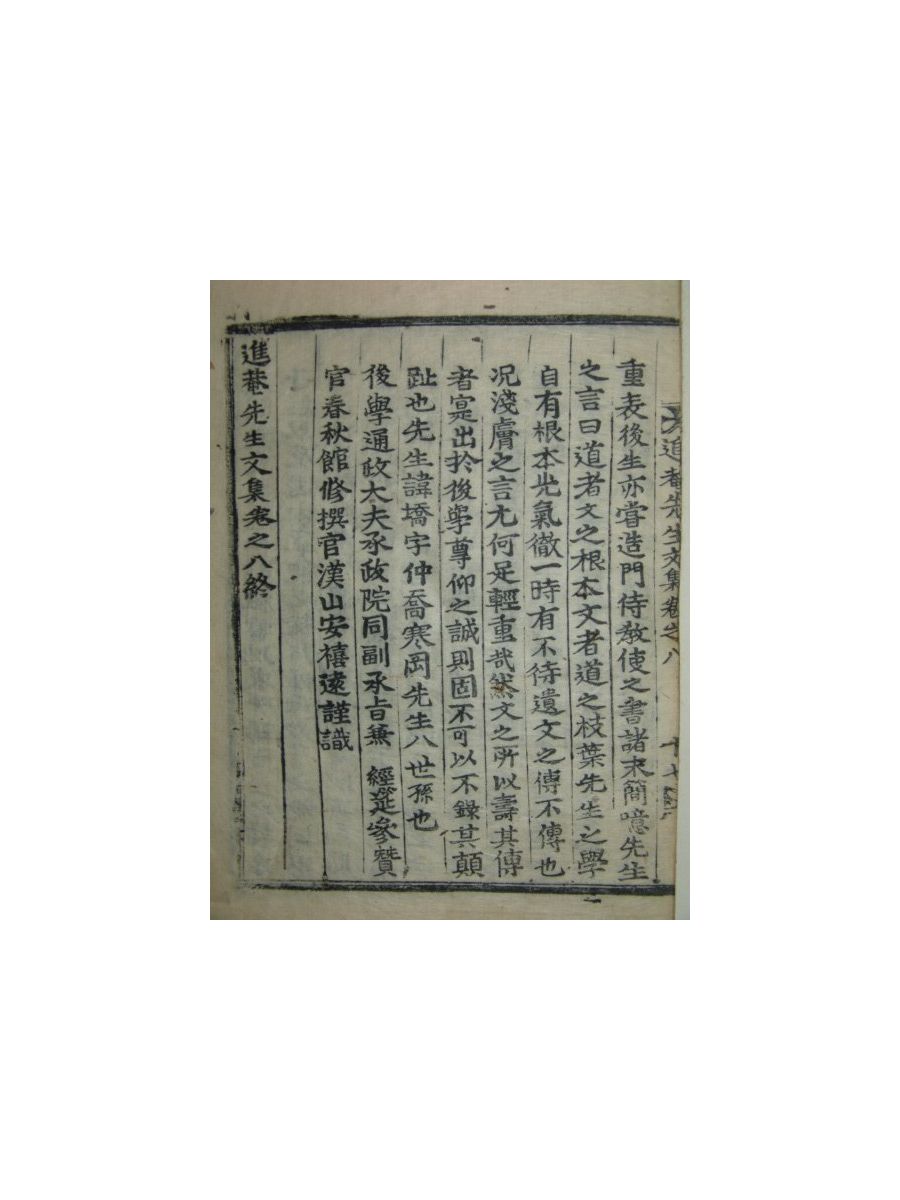 重表後生亦嘗造門侍敎使之書諸末簡噫先生
之言曰道者文之根本文者道之枝葉先生之學
自有根本光氣徹一時有不待遺文之傳不傳也
况淺膚之言尤何足輕重哉然文之所以壽其傳
者寔出於後學尊仰之誠則固不可以不錄其顚
趾也先生諱墧字仲喬寒岡先生八世孫也
後學通政大夫承政院同副承旨兼 經筵參贊
官春秋館修撰官漢山安禧遠謹識
進菴先生文集卷之八終
進菴先生文集卷之八 十七